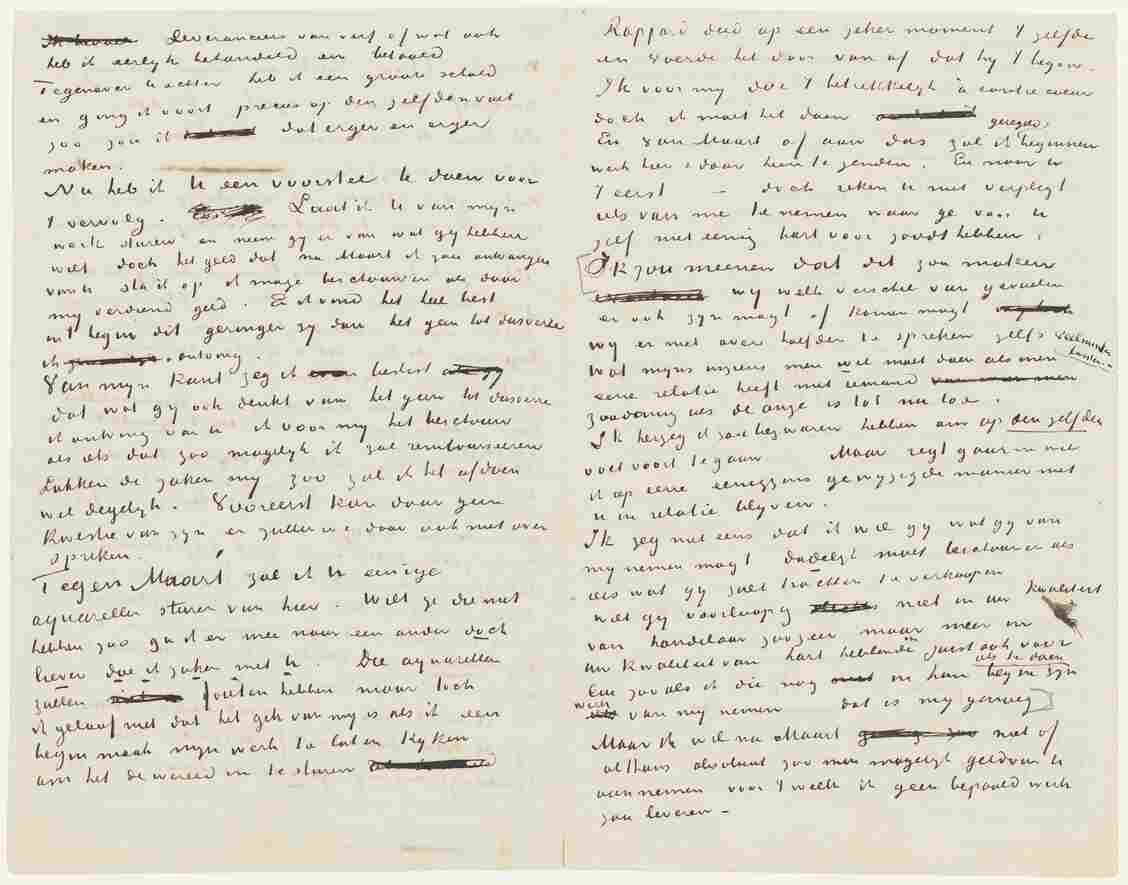 Leveranciers van verf of wat ook
heb ik eerlijk behandeld en betaald
Tegenover U echter heb ik een groote schuld
en ging ik voort precies op den zelfden voet
zoo zou ik dat erger en erger
maken.
Nu heb ik U een voorstel te doen voor
't vervolg. Laat ik U van mijn
werk sturen en neem gij er van wat gij hebben
wilt doch het geld dat na Maart ik zou ontvangen
van U sta ik op ik moge beschouwen als door
mij verdiend geld. En ik vind het heel best
in 't begin dit geringer zij dan het geen tot dusverre
ik ontving.
Van mijn kant zeg ik beslist
dat wat gij ook denkt van het geen tot dusverre
ik ontving van U ik voor mij het beschouw
als iets dat zoo mogelijk ik zal rembourseeren
Lukken de zaken mij zoo zal ik het afdoen
wel degelijk. Vooreerst kan daar geen
kwestie van zijn en zullen we daar ook niet over
spreken.
Tegen Maart zal ik U eenige
aquarellen sturen van hier. Wilt ge die niet
hebben zoo ga ik er mee naar een ander doch
liever doe ik zaken met U. Die aquarellen
zullen fouten hebben maar toch
ik geloof niet dat het gek van mij is als ik een
begin maak mijn werk te laten kijken
om het de wereld in te sturen
Rappard deed op een zeker moment 't zelfde
en voerde het door van af dat hij 't begon.
Ik voor mij doe 't betrekkelijk à contre coeur
doch ik moet het doen
geregeld
En van Maart of aan dus zal ik beginnen
werk hier & daar heen te zenden. En naar U
't eerst – doch reken U niet verpligt
iets van me te nemen waar ge voor U
zelf niet eenig hart voor zoudt hebben.
Ik zou meenen dat dit zou maken
wij welk verschil van gevoelen
er ook zijn mogt of komen mogt
wij er niet over hoefden te spreken zelfs
wat mijns inziens men wel moet doen als men
eene relatie heeft met iemand
zoodanig als de onze is tot nu toe.
Ik herzeg ik zou bezwaren hebben om op den zelfden
voet voort te gaan Maar regt gaarne wil
ik op eene eenigzins gewijzigde manier met
U in relatie blijven.
Ik zeg niet eens dat ik wil gij wat gij van
mij nemen mogt dadelijk moet beschouwen als
iets wat gij zoet trachten te verkoopen
wat gij voorloopig niet in uw kwaliteit
van handelaar zoozeer maar meer in
uw kwaliteit van hart hebbende in juist ook voor
als te doen
werk van mij nemen dat is mij genoeg
Maar ik wil na Maart niet of
althans absoluut zoo min mogelijk geld van U
aannemen voor 't welk ik geen bepaald werk
zou leveren –